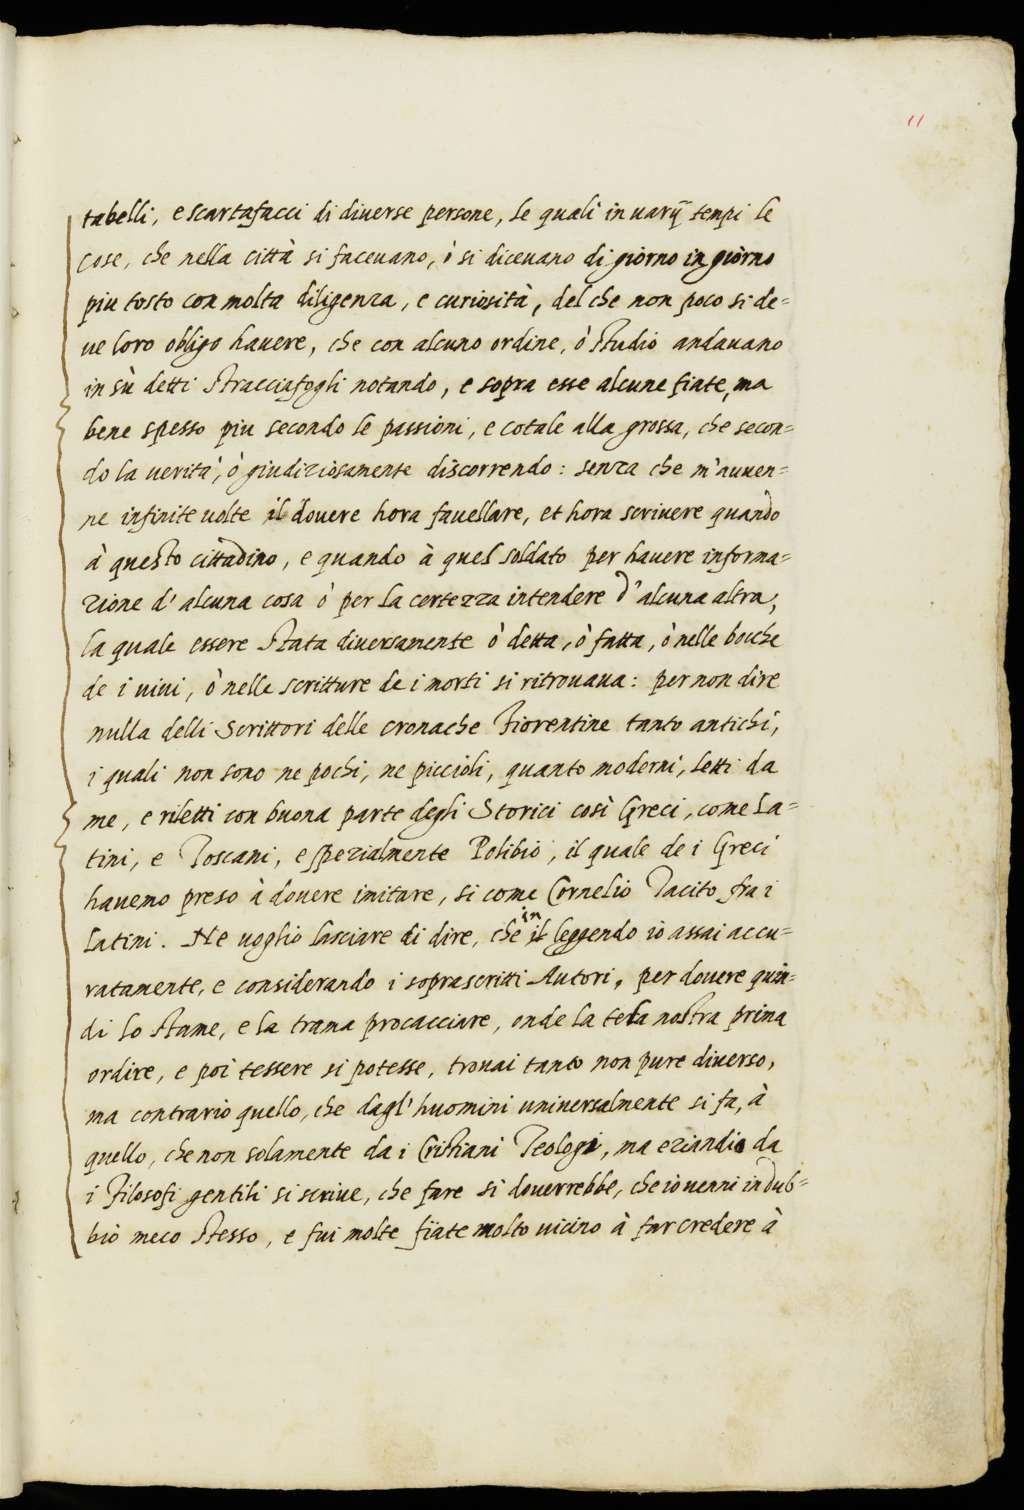 11
tabelli, e scartafacci di diuerse persone, le quali in uarÿ tempi le
cose, che nella città si faceuano, ò si diceuano di giorno in giorno
piu tosto con molta diligenza, e curiosità, del che non poco si de=
ue loro obligo hauere, che con alcuno ordine, ò studio andauano
in sù detti stracciafogli notando, e sopra esse alcune fiate, ma
bene spesso piu secondo le passioni, e cotale alla grossa, che secon=
do la uerità, ò giudiziosamente discorrendo: senza che m'auuen=
ne infinite uolte il douere hora fauellare, et hora scriuere quando
à questo cittadino, e quando à quel soldato per hauere informa=
zione d'alcuna cosa ò per la certezza intendere d'alcuna altra,
la quale essere stata diuersamente ò detta, ò fatta, ò nelle bocche
de i uiui, ò nelle scritture de i morti si ritrouaua: per non dire
nulla delli Scrittori delle cronache Fiorentine tanto antichi,
i quali non sono ne pochi, ne piccioli, quanto moderni, letti da
me, e riletti con buona parte degli Storici così Greci, come La=
tini, e Toscani, e spezialmente Polibio, il quale de i Greci
hauemo preso à douere imitare, si come Cornelio Tacito fra i
Latini. Ne uoglio lasciare di dire, che in il leggendo io assai accu=
ratamente, e considerando i soprascritti Autori, per douere quin=
di lo stame, e la trama procacciare, onde la tela nostra prima
ordire, e poi tessere si potesse, trouai tanto non pure diuerso,
ma contrario quello, che dagl'huomini uniuersalmente si fa, à
quello, che non solamente da i Cristiani Teologi, ma eziandio da
i Filosofi gentili si scriue, che fare si douerrebbe, che io uenni in dub=
bio meco stesso, e fui molte fiate molto uicino à far credere à